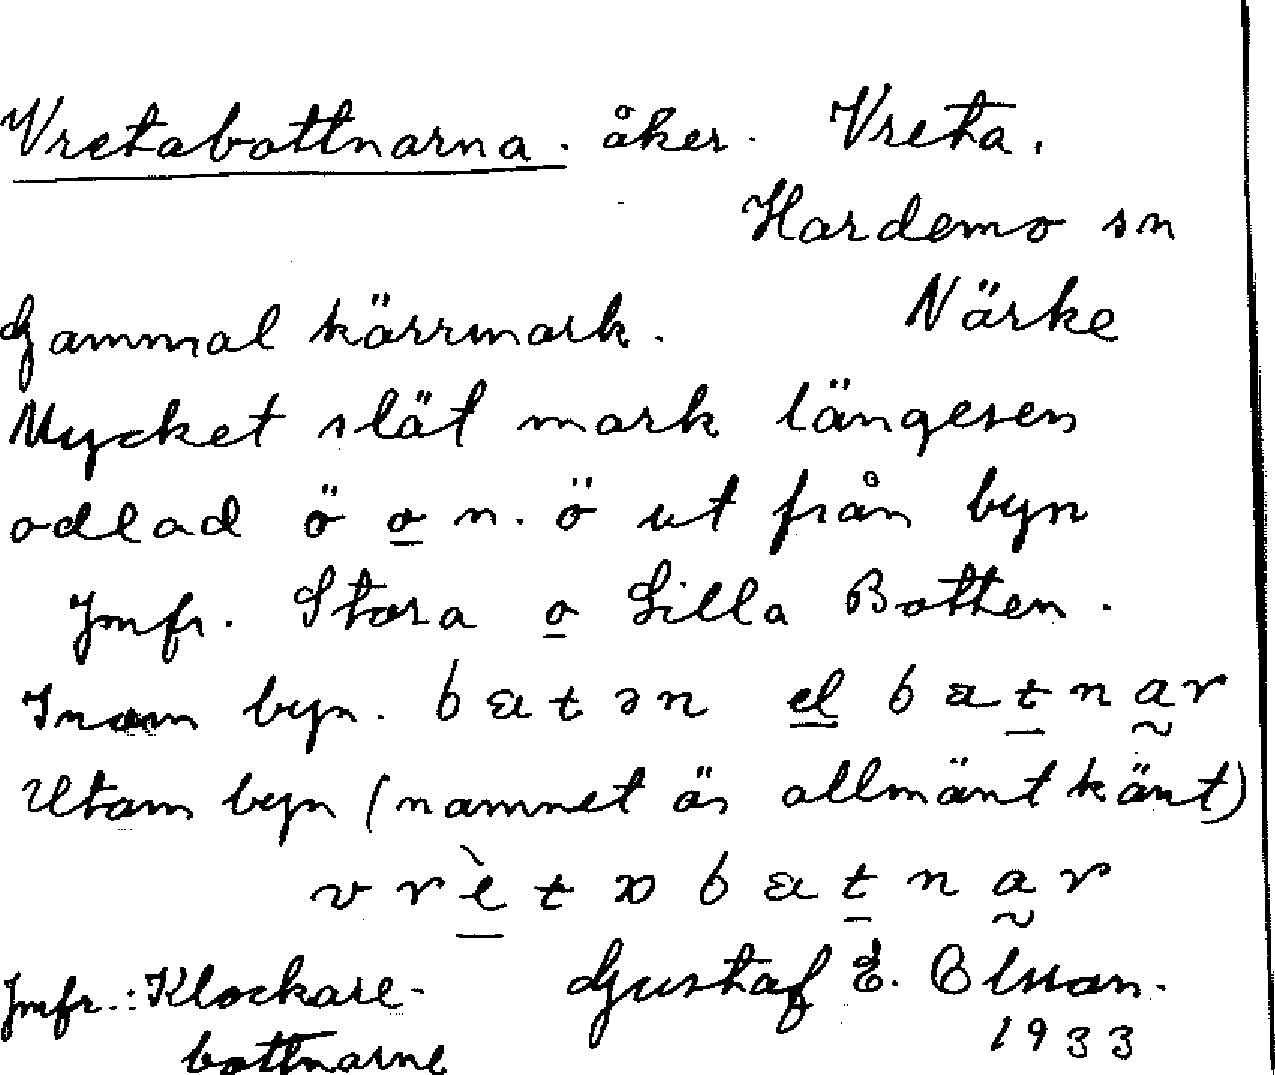 Vretabottnarna. åker. Vreta.
Hardemo sn
Gammal kärrmark. Närke
Mycket slät mark längesen
odlad ö o n. ö ut från byn
Jmfr. Stora o Lilla Botten.
Inom byn. batən el batnar
Utom byn (namnet är allmänt känt)
vrètabatnar
Jmfr.: Klockare- Gustaf E. Olsson.
bottnarne 1933